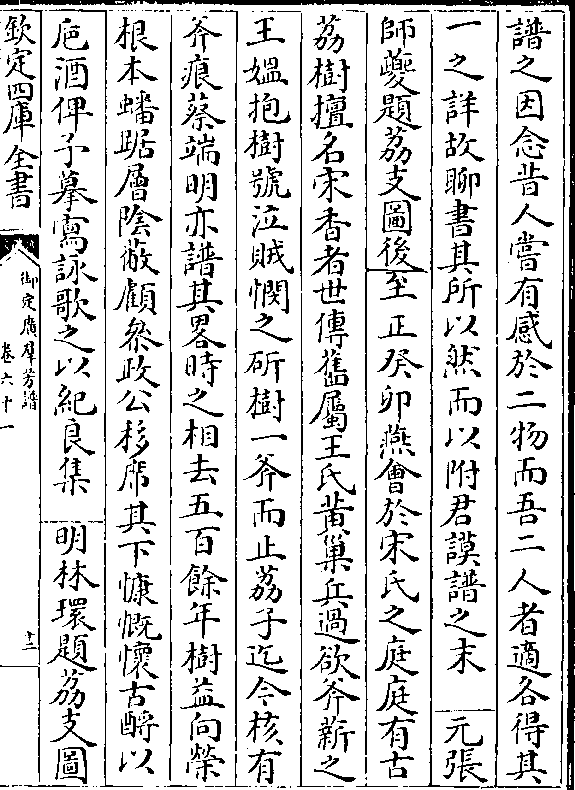 譜之因念昔人嘗有感於二物而吾二人者適各得其
一之詳故聊書其所以然而以附君謨譜之末　元張
師夔題荔支圖後至正癸卯燕會於宋氏之庭庭有古
荔樹擅名宋香者世傳舊屬王氏黃巢兵過欲斧薪之
王媼抱樹號泣賊憫之斫樹一斧而止荔子迄今核有
斧痕蔡端明亦譜其畧時之相去五百餘年樹益向榮
根本蟠踞層陰蔽虧叅政公移席其下慷慨懷古酹以
巵酒俾予摹寫詠歌之以紀良集　明林環題荔支圖
欽定四庫全書
御定廣羣芳譜
卷六十一
十二